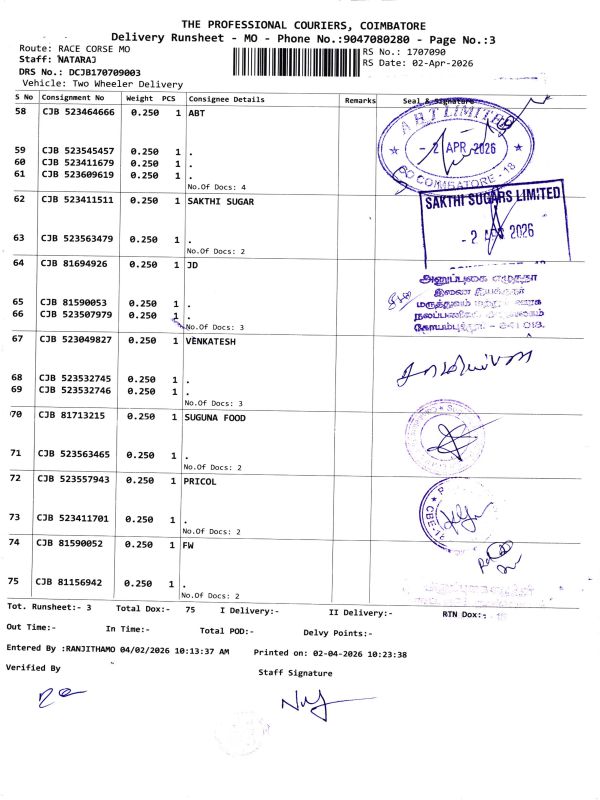 THE PROFESSIONAL COURIERS, COIMBATORE
Delivery Runsheet - MO - Phone No.:9047080280 - Page No.:3
Route: RACE CORSE MO
RS No.: 1707090
Staff: NATARAJ
RS Date: 02-Apr-2026
DRS No.: DCJB170709003
Vehicle: Two Wheeler Delivery
S No Consignment No Weight PCS Consignee Details Remarks Seal & Signature
58 CJB 523464666 0.250 1 ABT
A B T LIMITED
- 2 APR 2026
COIMBATORE - 18
59 CJB 523545457 0.250 1 .
60 CJB 523411679 0.250 1 .
61 CJB 523609619 0.250 1 .
No.Of Docs: 4
62 CJB 523411511 0.250 1 SAKTHI SUGAR
SAKTHI SUGARS LIMITED
- 2 APR 2026
63 CJB 523563479 0.250 1 .
No.Of Docs: 2
64 CJB 81694926 0.250 1 JD
அனுப்புகை எழுத்தர்
65 CJB 81590053 0.250 1 .
66 CJB 523507979 0.250 1 .
No.Of Docs: 3
67 CJB 523049827 0.250 1 VENKATESH
68 CJB 523532745 0.250 1 .
69 CJB 523532746 0.250 1 .
No.Of Docs: 3
70 CJB 81713215 0.250 1 SUGUNA FOOD
71 CJB 523563465 0.250 1 .
No.Of Docs: 2
72 CJB 523557943 0.250 1 PRICOL
73 CJB 523411701 0.250 1 .
No.Of Docs: 2
74 CJB 81590052 0.250 1 FW
75 CJB 81156942 0.250 1 .
No.Of Docs: 2
Tot. Runsheet:- 3 Total Dox:- 75 I Delivery:- II Delivery:- RTN Dox:-
Out Time:- In Time:- Total POD:- Delvy Points:-
Entered By :RANJITHAMO 04/02/2026 10:13:37 AM Printed on: 02-04-2026 10:23:38
Verified By Staff Signature